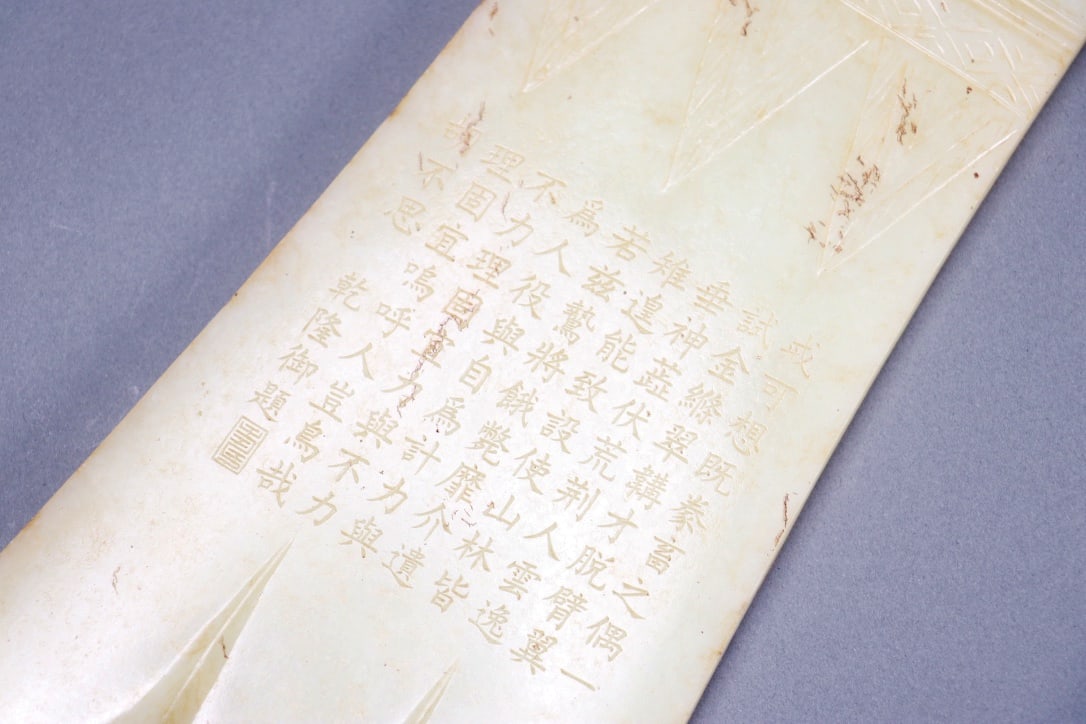 戒可想既豢畜之偶一
試金絛翠鞲才脫臂翼
垂神伏荒荆人雲逸
雉遑能致設使山林皆
若茲鷙將餓斃靡介遺
為人役與自為計力與
不力理自力與不力
理固宜嗚呼人豈鳥哉
不思
乾隆御題